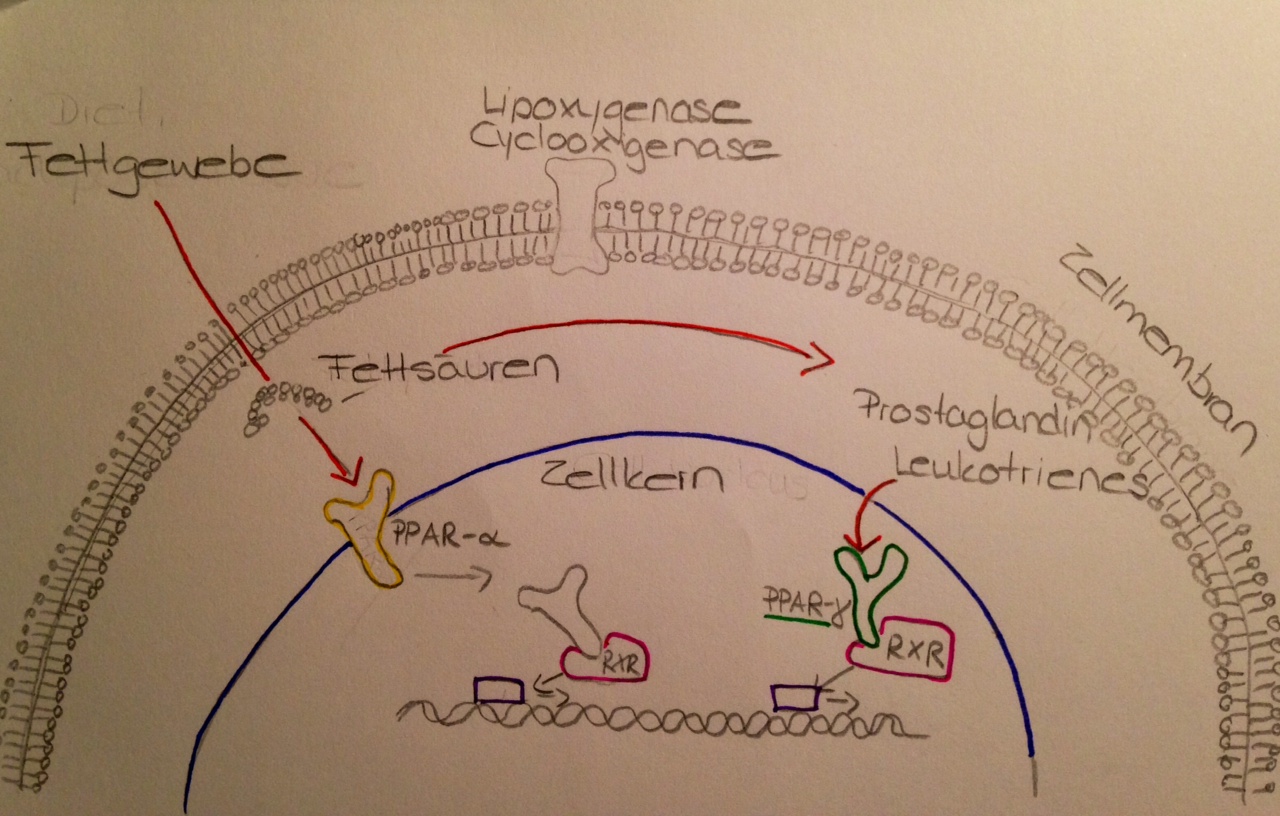 Diet,
Fettgewebe
Lipoxygenase
Cyclooxygenase
Zellmembran
Fettsäuren
Prostaglandin
Leukotrienes
Zellkern
PPAR-α
PPAR-γ
RXR
RXR